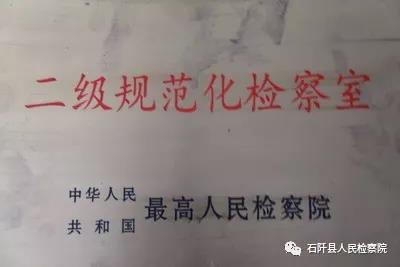 二级规范化检察室
中华人民
共和国
最高人民检察院
石阡县人民检察院